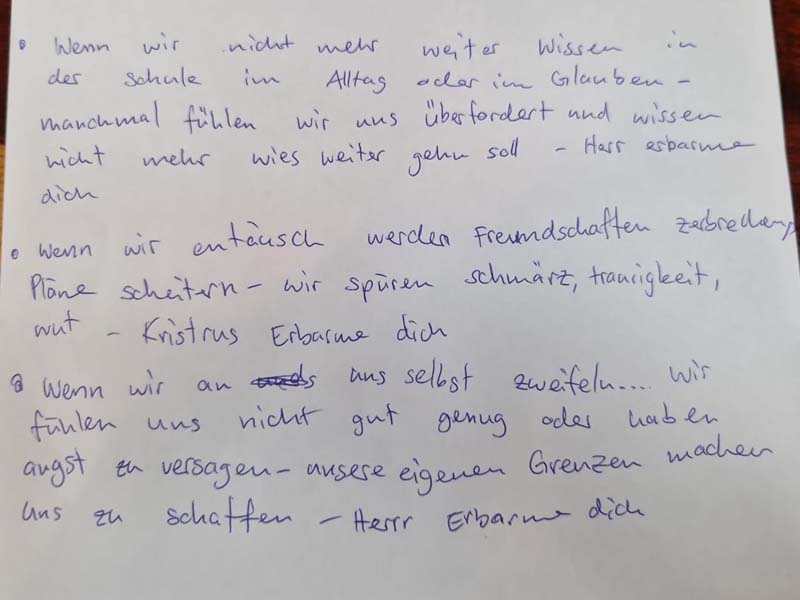 • Wenn wir nicht mehr weiter wissen in
der schule im Alltag oder im Glauben -
manchmal fühlen wir uns überfordert und wissen
nicht mehr wies weiter gehn soll - Herr erbarme
dich
• Wenn wir entäusch werden Freundschaften zerbrechen,
Pläne scheitern - wir spüren schmärz, traurigkeit,
wut - Kristrus Erbarme dich
• Wenn wir an uns selbst zweifeln.... wir
fühlen uns nicht gut genug oder haben
angst zu versagen - unsere eigenen Grenzen machen
uns zu schaffen - Herrr Erbarme dich